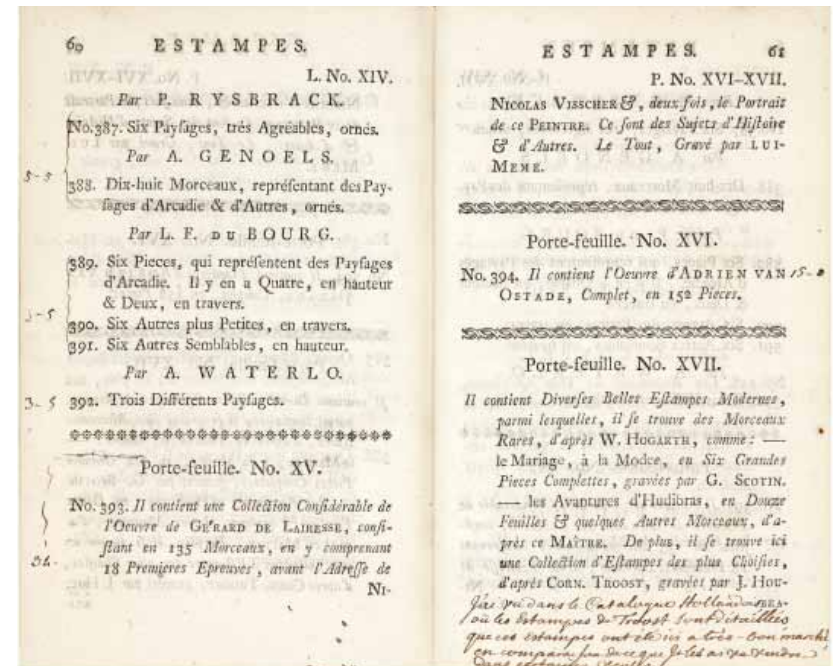 60 ESTAMPES.
L. No. XIV.
Par P. RYSBRACK.
No. 387. Six Payſages, trés Agréables, ornés.
Par A. GENOELS.
5-5
388. Dix-huit Morceaux, repréſentant des Pay-
ſages d'Arcadie & d'Autres, ornés.
Par L. F. DU BOURG.
389. Six Pieces, qui repréſentent des Payſages
d'Arcadie. Il y en a Quatre, en hauteur
& Deux, en travers.
3-5
390. Six Autres plus Petites, en travers.
391. Six Autres Semblables, en hauteur.
Par A. WATERLO.
3-5 392. Trois Différents Payſages.
Porte-feuille. No. XV.
No. 393. Il contient une Collection Conſidérable de
l'Oeuvre de GÉRARD DE LAIRESSE, conſi-
ſtant en 135 Morceaux, en y comprenant
18 Premieres Epreuves, avant l'Adreſſe de
NI-
ESTAMPES. 61
P. No. XVI-XVII.
NICOLAS VISSCHER &, deux fois, le Portrait
de ce PEINTRE. Ce ſont des Sujets d'Hiſtoire
& d'Autres. Le Tout, Gravé par LUI-
MEME.
Porte-feuille. No. XVI.
No. 394. Il contient l'Oeuvre d'ADRIEN VAN
OSTADE, Complet, en 152 Pieces.
Porte-feuille. No. XVII.
Il contient Diverſes Belles Eſtampes Modernes,
parmi lesquelles, il ſe trouve des Morceaux
Rares, d'après W. HOGARTH, comme: —
le Mariage, à la Modce, en Six Grandes
Pieces Complettes, gravées par G. SCOTIN.
— les Avantures d'Hudibras, en Douze
Feuilles & quelques Autres Morceaux, d'a-
près ce MAÎTRE. De plus, il ſe trouve ici
une Collection d'Eſtampes des plus Choiſies,
d'après CORN. TROOST, gravées par J. HOU-
BRA-
J'ai vu dans le Catalogue Hollandois
où les Estampes de Troost sont détaillées
que ces estampes ont été ici a très-bon marché
en comparaison de ce que je les ai vu vendre
dans